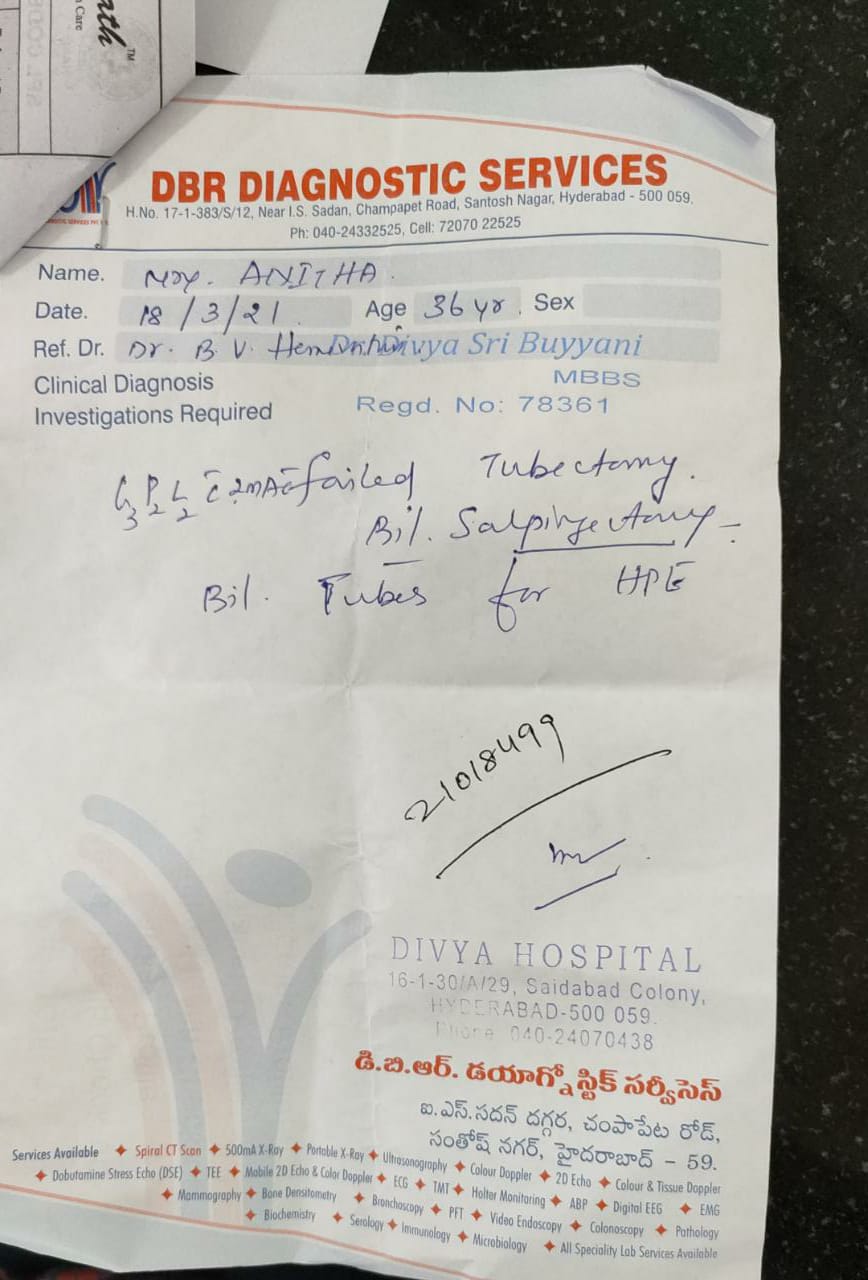 nth™
Care
DBR DIAGNOSTIC SERVICES
H.No. 17-1-383/S/12, Near I.S. Sadan, Champapet Road, Santosh Nagar, Hyderabad - 500 059.
Ph: 040-24332525, Cell: 72070 22525
Name. ANITHA.
Date. 18/3/21. Age 36 yr. Sex
Ref. Dr. Dr. B. V. Divya Sri Buyyani
Clinical Diagnosis MBBS
Investigations Required Regd. No: 78361
G3 P2 L2 c̄ 2MA c̄ failed Tubectomy.
Bil. Salpingectomy -
Bil. Tubes for HPE
21018499
DIVYA HOSPITAL
16-1-30/A/29, Saidabad Colony,
HYDERABAD-500 059.
Phone 040-24070438
డి.బి.ఆర్. డయాగ్నోస్టిక్ సర్వీసెస్
ఐ.ఎస్.సదన్ దగ్గర, చంపాపేట రోడ్,
సంతోష్ నగర్, హైదరాబాద్ – 59.
Services Available ✦ Spiral CT Scan ✦ 500mA X-Ray ✦ Portable X-Ray ✦ Ultrasonography ✦ Colour Doppler ✦ 2D Echo ✦ Colour & Tissue Doppler
✦ Dobutamine Stress Echo (DSE) ✦ TEE ✦ Mobile 2D Echo & Color Doppler ✦ ECG ✦ TMT ✦ Holter Monitoring ✦ ABP ✦ Digital EEG ✦ EMG
✦ Mammography ✦ Bone Densitometry ✦ Bronchoscopy ✦ PFT ✦ Video Endoscopy ✦ Colonoscopy ✦ Pathology
✦ Biochemistry ✦ Serology ✦ Immunology ✦ Microbiology ✦ All Speciality Lab Services Available